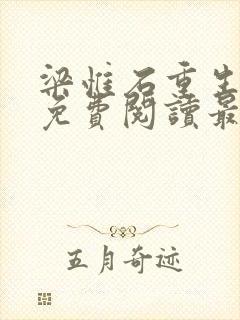 梁惟石重生
免費閱讀最
五月奇迹